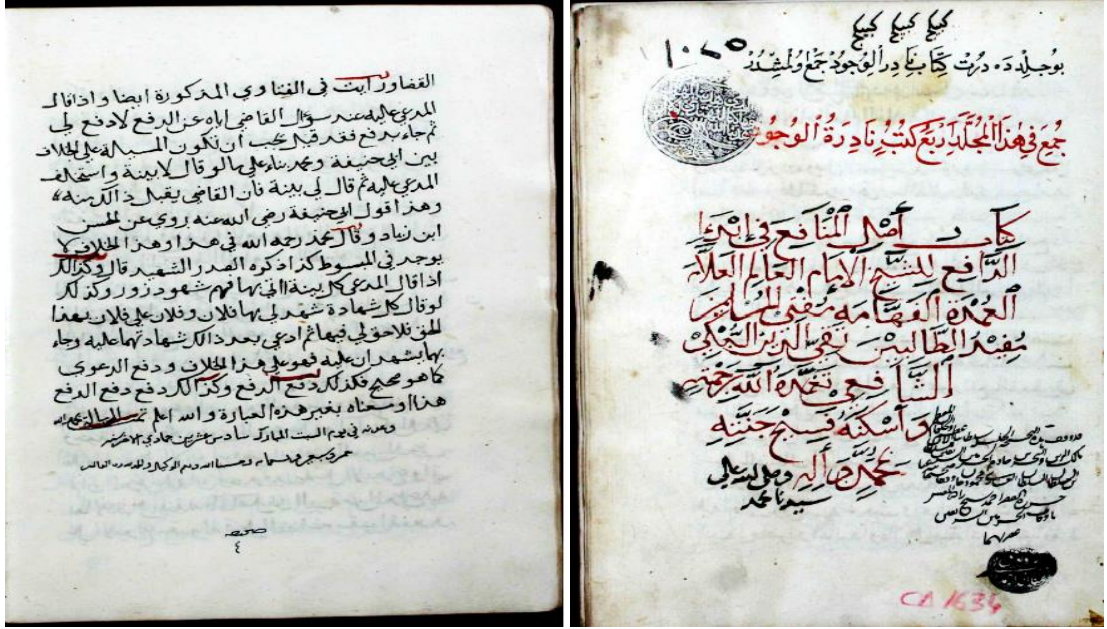 القضا ورايت في الفتاوي المذكورة ايضا واذا قال
المدعي عليه عند سؤال القاضي اياه عن الدفع لا دفع لي
ثم جاء بدفع فقد قيل يجب أن تكون المسيلة على الخلاف
بين ابي حنيفة ومحمد بناء على ما لو قال لا بينة واستحلف
المدعى عليه ثم قال لي بينة فان القاضي يقبل ذالك منه
وهذا قول ابي حنيفة رضي الله عنه روي عن الحسن
ابن زياد وقال محمد رحمه الله في هذا وهذا الخلاف لا
يوجد في المبسوط كذا ذكره الصدر الشهيد قال وكذالك
اذا قال المدعي كل بينة اتي بها فهم شهود زور وكذلك
لو قال كل شهادة شهد لي بها فلان وفلان على فلان بهذا
الحق فلا حق لي فيها ثم ادعى بعد ذالك شهادتهما عليه وجاء
بهما يشهدان عليه فهو على هذا الخلاف ودفع الدعوي
كما هو صحيح فكذلك دفع الدفع وكذالك دفع دفع الدفع
هذا او معناه بغير هذه العبارة والله اعلم تمت الرسالة
في يوم السبت المبارك سادس عشرين جمادي
صح
٤
كبيكج كبيكج كبيكج
١٠٢٥
بو جلدده درت كتاب نادر الوجود جمع اولمشدر
جمع في هذا المجلد اربع كتب نادرة الوجود
كتاب أصل المنافع في
الدافع للشيخ الإمام العالم العلامة
العمدة الفهامة مفتي المسلمين
مفيد الطالبين تقي الدين السبكي
الشافعي تغمده الله برحمته
وأسكنه فسيح جنته
بمحمد وآله وصلى الله على
سيدنا محمد
CA 1634